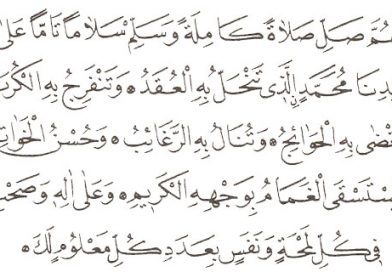 صَلِّ صَلَاةً كَامِلَةً وَسَلِّمْ سَلَامًا تَامًّا عَلَى
مُحَمَّدٍ الَّذِى تَنْحَلُّ بِهِ الْعُقَدُ ۞ وَتَنْفَرِجُ بِهِ الْكُرَ
بِهِ الْحَوَائِجُ ۞ وَتُنَالُ بِهِ الرَّغَائِبُ ۞ وَحُسْنُ الْخَوَاتِ
سْتَسْقَى الْغَمَامُ بِوَجْهِهِ الْكَرِيمِ ۞ وَعَلَى اٰلِهِ وَصَحْبِ
فِى كُلِّ لَمْحَةٍ وَنَفَسٍ بِعَدَدِ كُلِّ مَعْلُومٍ لَكَ ۞